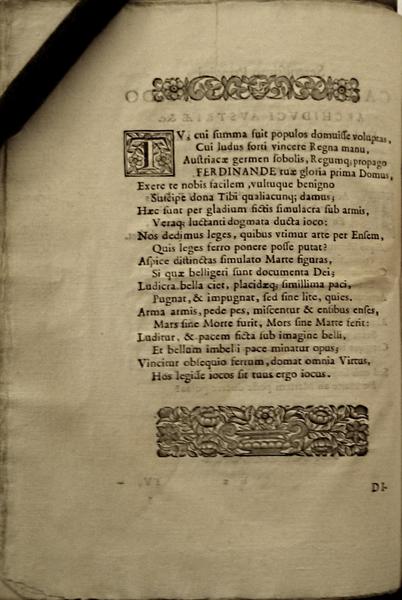 TV, cui summa fuit populos domuisse voluptas,
Cui ludus forti vincere Regna manu,
Austriacæ germen sobolis, Regumq; propago
FERDINANDE tuæ gloria prima Domus,
Exere te nobis facilem, vultuque benigno
Suscipe dona Tibi qualiacunq; damus;
Hæc sunt per gladium fictis simulacra sub armis,
Veraq; luctanti dogmata ducta ioco:
Nos dedimus leges, quibus vtimur arte per Ensem,
Quis leges ferro ponere posse putat?
Aspice distinctas simulato Marte figuras,
Si quæ belligeri sunt documenta Dei;
Ludicra bella ciet, placidæq; simillima paci,
Pugnat, & impugnat, sed sine lite, quies.
Arma armis, pede pes, miscentur & ensibus enses,
Mars sine Morte furit, Mors sine Marte ferit:
Luditur, & pacem ficta sub imagine belli,
Et bellum imbelli pace minatur opus;
Vincitur obsequio ferrum, domat omnia Virtus,
Hos legisse iocos sit tuus ergo iocus.
DI-